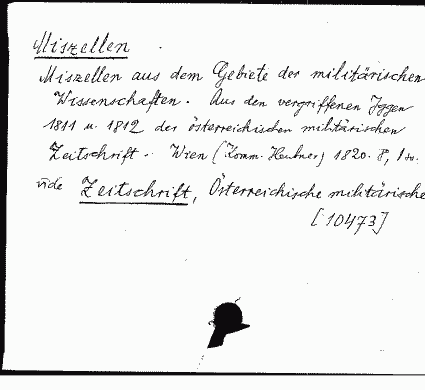 Miszellen
Miszellen aus dem Gebiete der militärischen
Wissenschaften. Aus den vergriffenen Jggen
1811 u. 1812 der österreichischen militärischen
Zeitschrift. Wien (Komm. Heubner) 1820. 8,
vide Zeitschrift, Österreichische militärische
[10473]